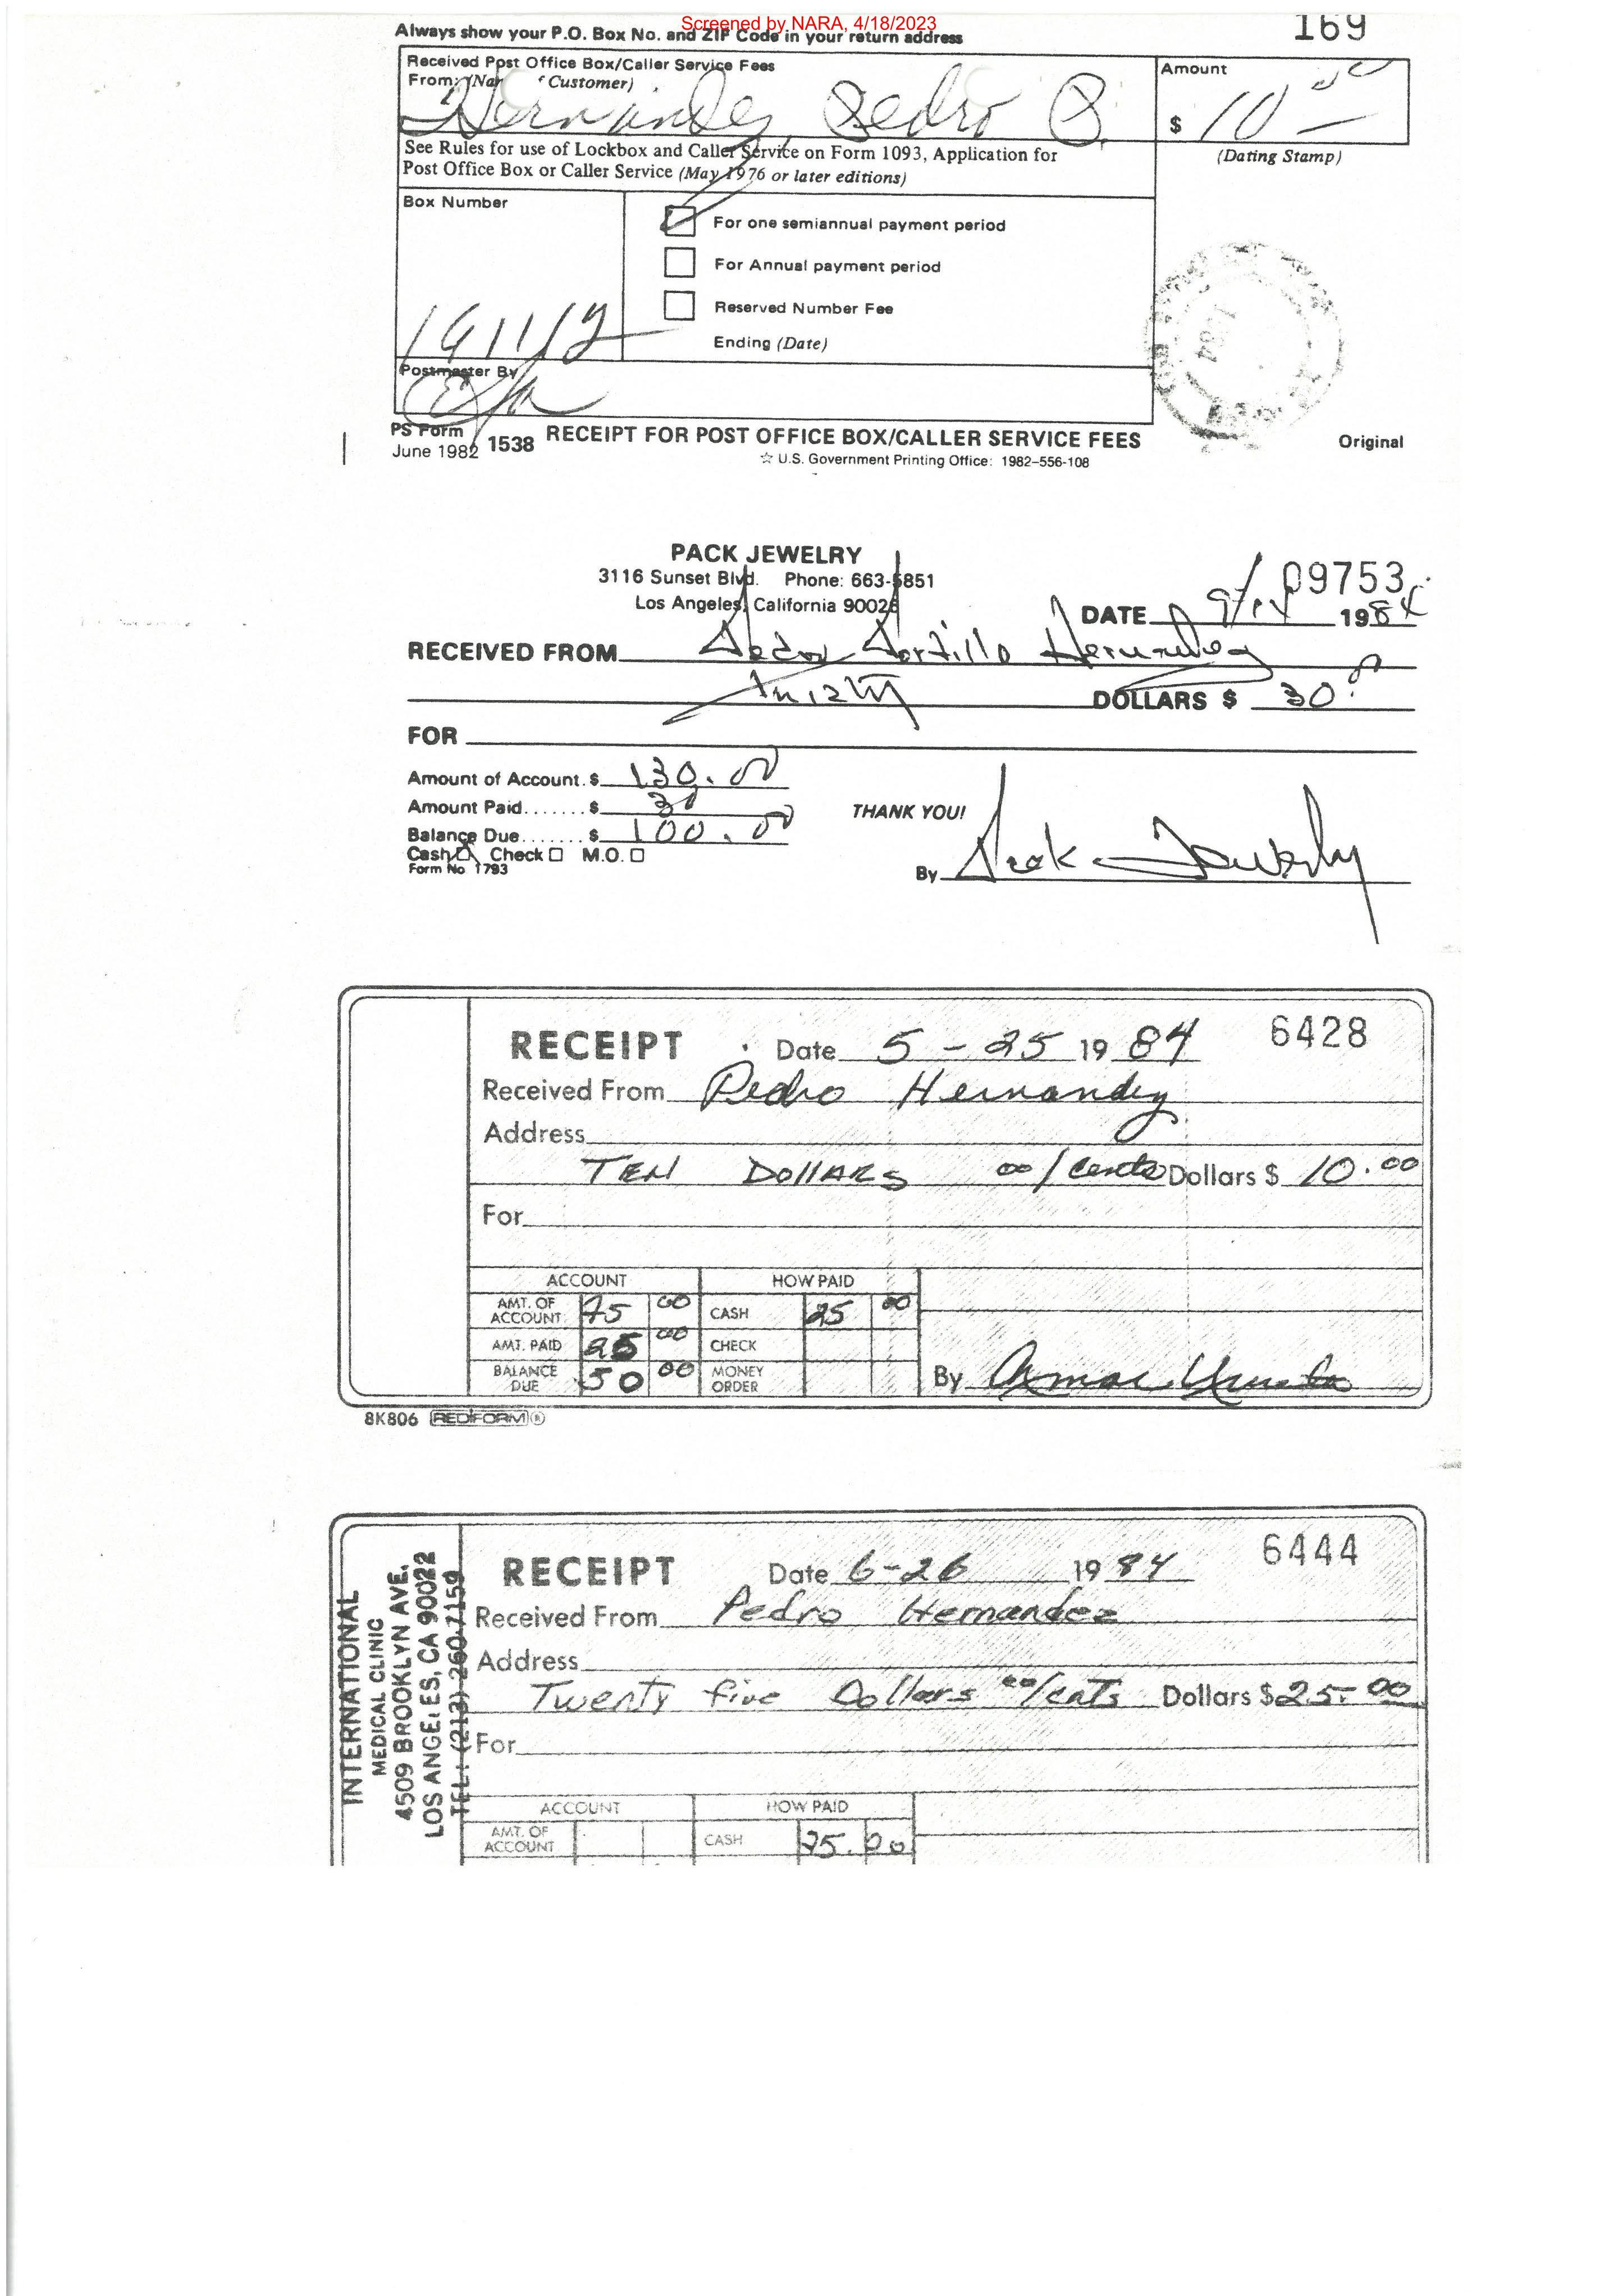 Screened by NARA, 4/18/2023
169
Always show your P.O. Box No. and ZIP Code in your return address
Received Post Office Box/Caller Service Fees
From: (Nar f Customer)
Hernandez, Pedro P.
Amount
$ 10 00
See Rules for use of Lockbox and Caller Service on Form 1093, Application for
Post Office Box or Caller Service (May 1976 or later editions)
(Dating Stamp)
Box Number
For one semiannual payment period
For Annual payment period
Reserved Number Fee
Ending (Date)
1984
Postmaster By
PS Form
June 1982 1538 RECEIPT FOR POST OFFICE BOX/CALLER SERVICE FEES
Original
☆ U.S. Government Printing Office: 1982-556-108
PACK JEWELRY
3116 Sunset Blvd. Phone: 663-5851
Los Angeles, California 90026
09753
DATE 1984
RECEIVED FROM Hernandez
DOLLARS $ 30.00
FOR
Amount of Account. $ 130.00
Amount Paid....... $ 30
Balance Due....... $ 100.00
THANK YOU!
Cash Check M.O.
Form No 1793
By Pack Jewelry
RECEIPT Date 5-25 1984 6428
Received From Pedro Hernandez
Address
TEN DOLLARS 00/cents Dollars $ 10.00
For
ACCOUNT HOW PAID
AMT. OF ACCOUNT 75 00 CASH 25 00
AMT. PAID 25 00 CHECK
BALANCE DUE 50 00 MONEY ORDER
By
8K806 REDIFORM ®
INTERNATIONAL
MEDICAL CLINIC
4509 BROOKLYN AVE.
LOS ANGELES, CA 90022
TEL: (213) 260-7159
RECEIPT Date 6-26 1984 6444
Received From Pedro Hernandez
Address
Twenty five Dollars 00/cnts Dollars $ 25.00
For
ACCOUNT HOW PAID
AMT. OF ACCOUNT CASH 25.00